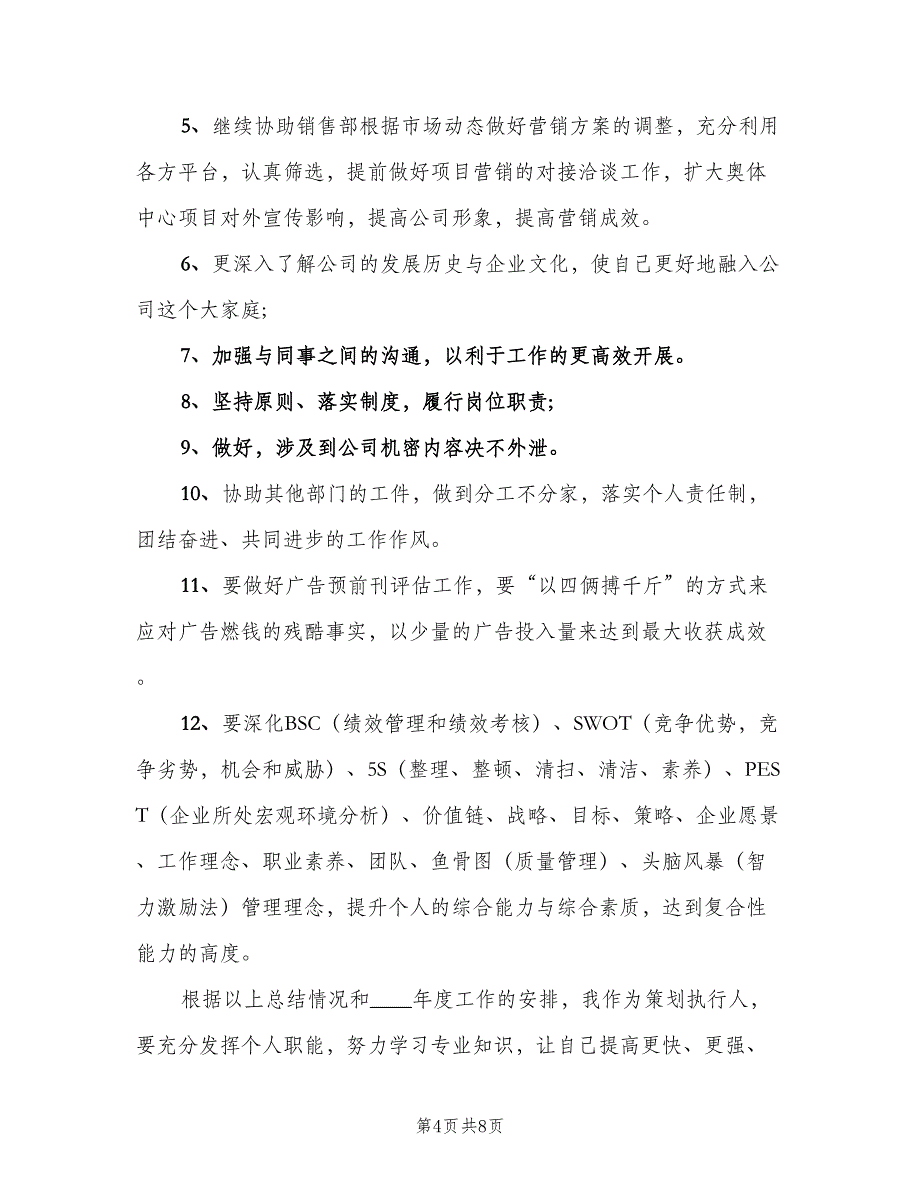 5、继续协助销售部根据市场动态做好营销方案的调整，充分利用
各方平台，认真筛选，提前做好项目营销的对接洽谈工作，扩大奥体
中心项目对外宣传影响，提高公司形象，提高营销成效。
6、更深入了解公司的发展历史与企业文化，使自己更好地融入公
司这个大家庭;
7、加强与同事之间的沟通，以利于工作的更高效开展。
8、坚持原则、落实制度，履行岗位职责;
9、做好，涉及到公司机密内容决不外泄。
10、协助其他部门的工件，做到分工不分家，落实个人责任制，
团结奋进、共同进步的工作作风。
11、要做好广告预前刊评估工作，要“以四俩搏千斤”的方式来
应对广告燃钱的残酷事实，以少量的广告投入量来达到最大收获成效
。
12、要深化BSC（绩效管理和绩效考核）、SWOT（竞争优势，竞
争劣势，机会和威胁）、5S（整理、整顿、清扫、清洁、素养）、PES
T（企业所处宏观环境分析）、价值链、战略、目标、策略、企业愿景
、工作理念、职业素养、团队、鱼骨图（质量管理）、头脑风暴（智
力激励法）管理理念，提升个人的综合能力与综合素质，达到复合性
能力的高度。
根据以上总结情况和____年度工作的安排，我作为策划执行人，
要充分发挥个人职能，努力学习专业知识，让自己提高更快、更强、
第4页 共8页